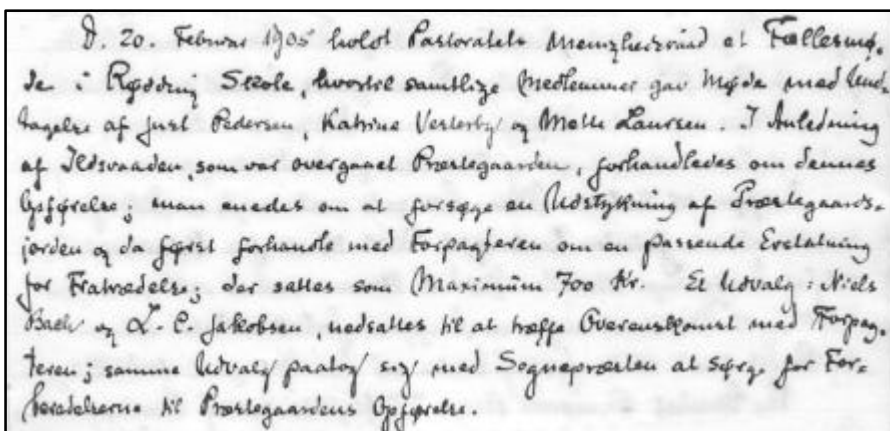 D. 20. Februar 1905 holdt Pastoratets Menighedsraad et Fællesmø-
de i Rødding Skole, hvortil samtlige Medlemmer gav Møde med Und-
tagelse af Just Pedersen, Katrine Vesterby og Mette Laursen. I Anledning
af Ildsvaaden, som var overgaaet Præstegaarden, forhandledes om dennes
Opførelse; man enedes om at forsøge en Udstykning af Præstegaards-
jorden og da først forhandle med Forpagteren om en passende Erstatning
for Fratrædelse; der sattes som Maximum 700 Kr. Et Udvalg: Niels
Bach og L. C. Jakobsen, nedsattes til at træffe Overenskomst med Forpag-
teren; samme Udvalg paatog sig med Sognepræsten at sørge for For-
beredelserne til Præstegaardens Opførelse.